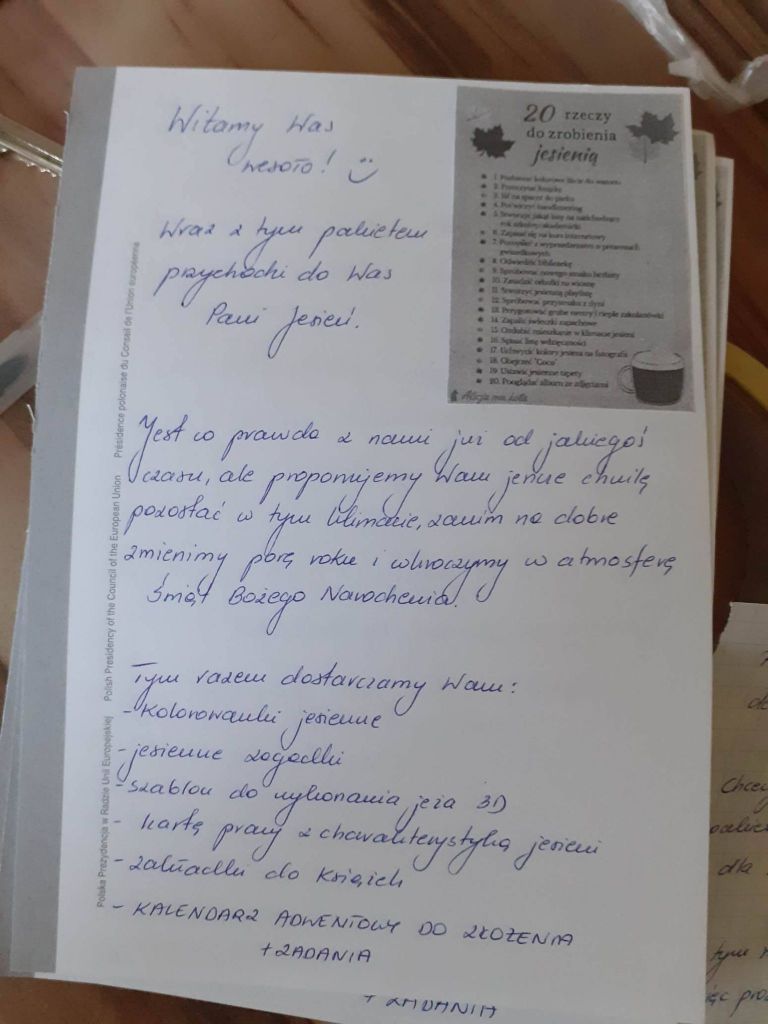 Witamy Was
wesoło!
Wraz z tym pakietem
przychodzi do Was
Pani Jesień.
20 rzeczy
do zrobienia
jesienią
1. Pozbierać kolorowe liście do wazonu
2. Przeczytać książkę
3. Iść na spacer do parku
4. Poćwiczyć handlettering
5. Stworzyć jakąś listę na nadchodzący
rok szkolny/akademicki
6. Zapisać się na kurs internetowy
7. Pomyśleć z wyprzedzeniem o prezentach
gwiazdkowych
8. Odwiedzić bibliotekę
9. Spróbować nowego smaku herbaty
10. Zasadzić cebulki na wiosnę
11. Stworzyć jesienną playlistę
12. Spróbować przysmaku z dyni
13. Przygotować grube swetry i ciepłe zakolanówki
14. Zapalić świeczki zapachowe
15. Ozdobić mieszkanie w klimacie jesieni
16. Spisać listę wdzięczności
17. Uchwycić kolory jesieni na fotografii
18. Obejrzeć "Coco"
19. Ustawić jesienne tapety
20. Pooglądać album ze zdjęciami
Alicja ma kota
Jest co prawda z nami już od jakiegoś
czasu, ale proponujemy Wam jeszcze chwilę
pozostać w tym klimacie, zanim na dobre
zmienimy porę roku i wkroczymy w atmosferę
Świąt Bożego Narodzenia.
Tym razem dostarczamy Wam:
- kolorowanki jesienne
- jesienne zagadki
- szablon do wykonania jeża 3D
- kartę pracy z charakterystyką jesieni
- zakładki do książek
- KALENDARZ ADWENTOWY DO ZŁOŻENIA
+ ZADANIA
+ ZADANIA
Polska Prezydencja w Radzie Unii Europejskiej Polish Presidency of the Council of the European Union Présidence polonaise du Conseil de l'Union européenne
dla
tym